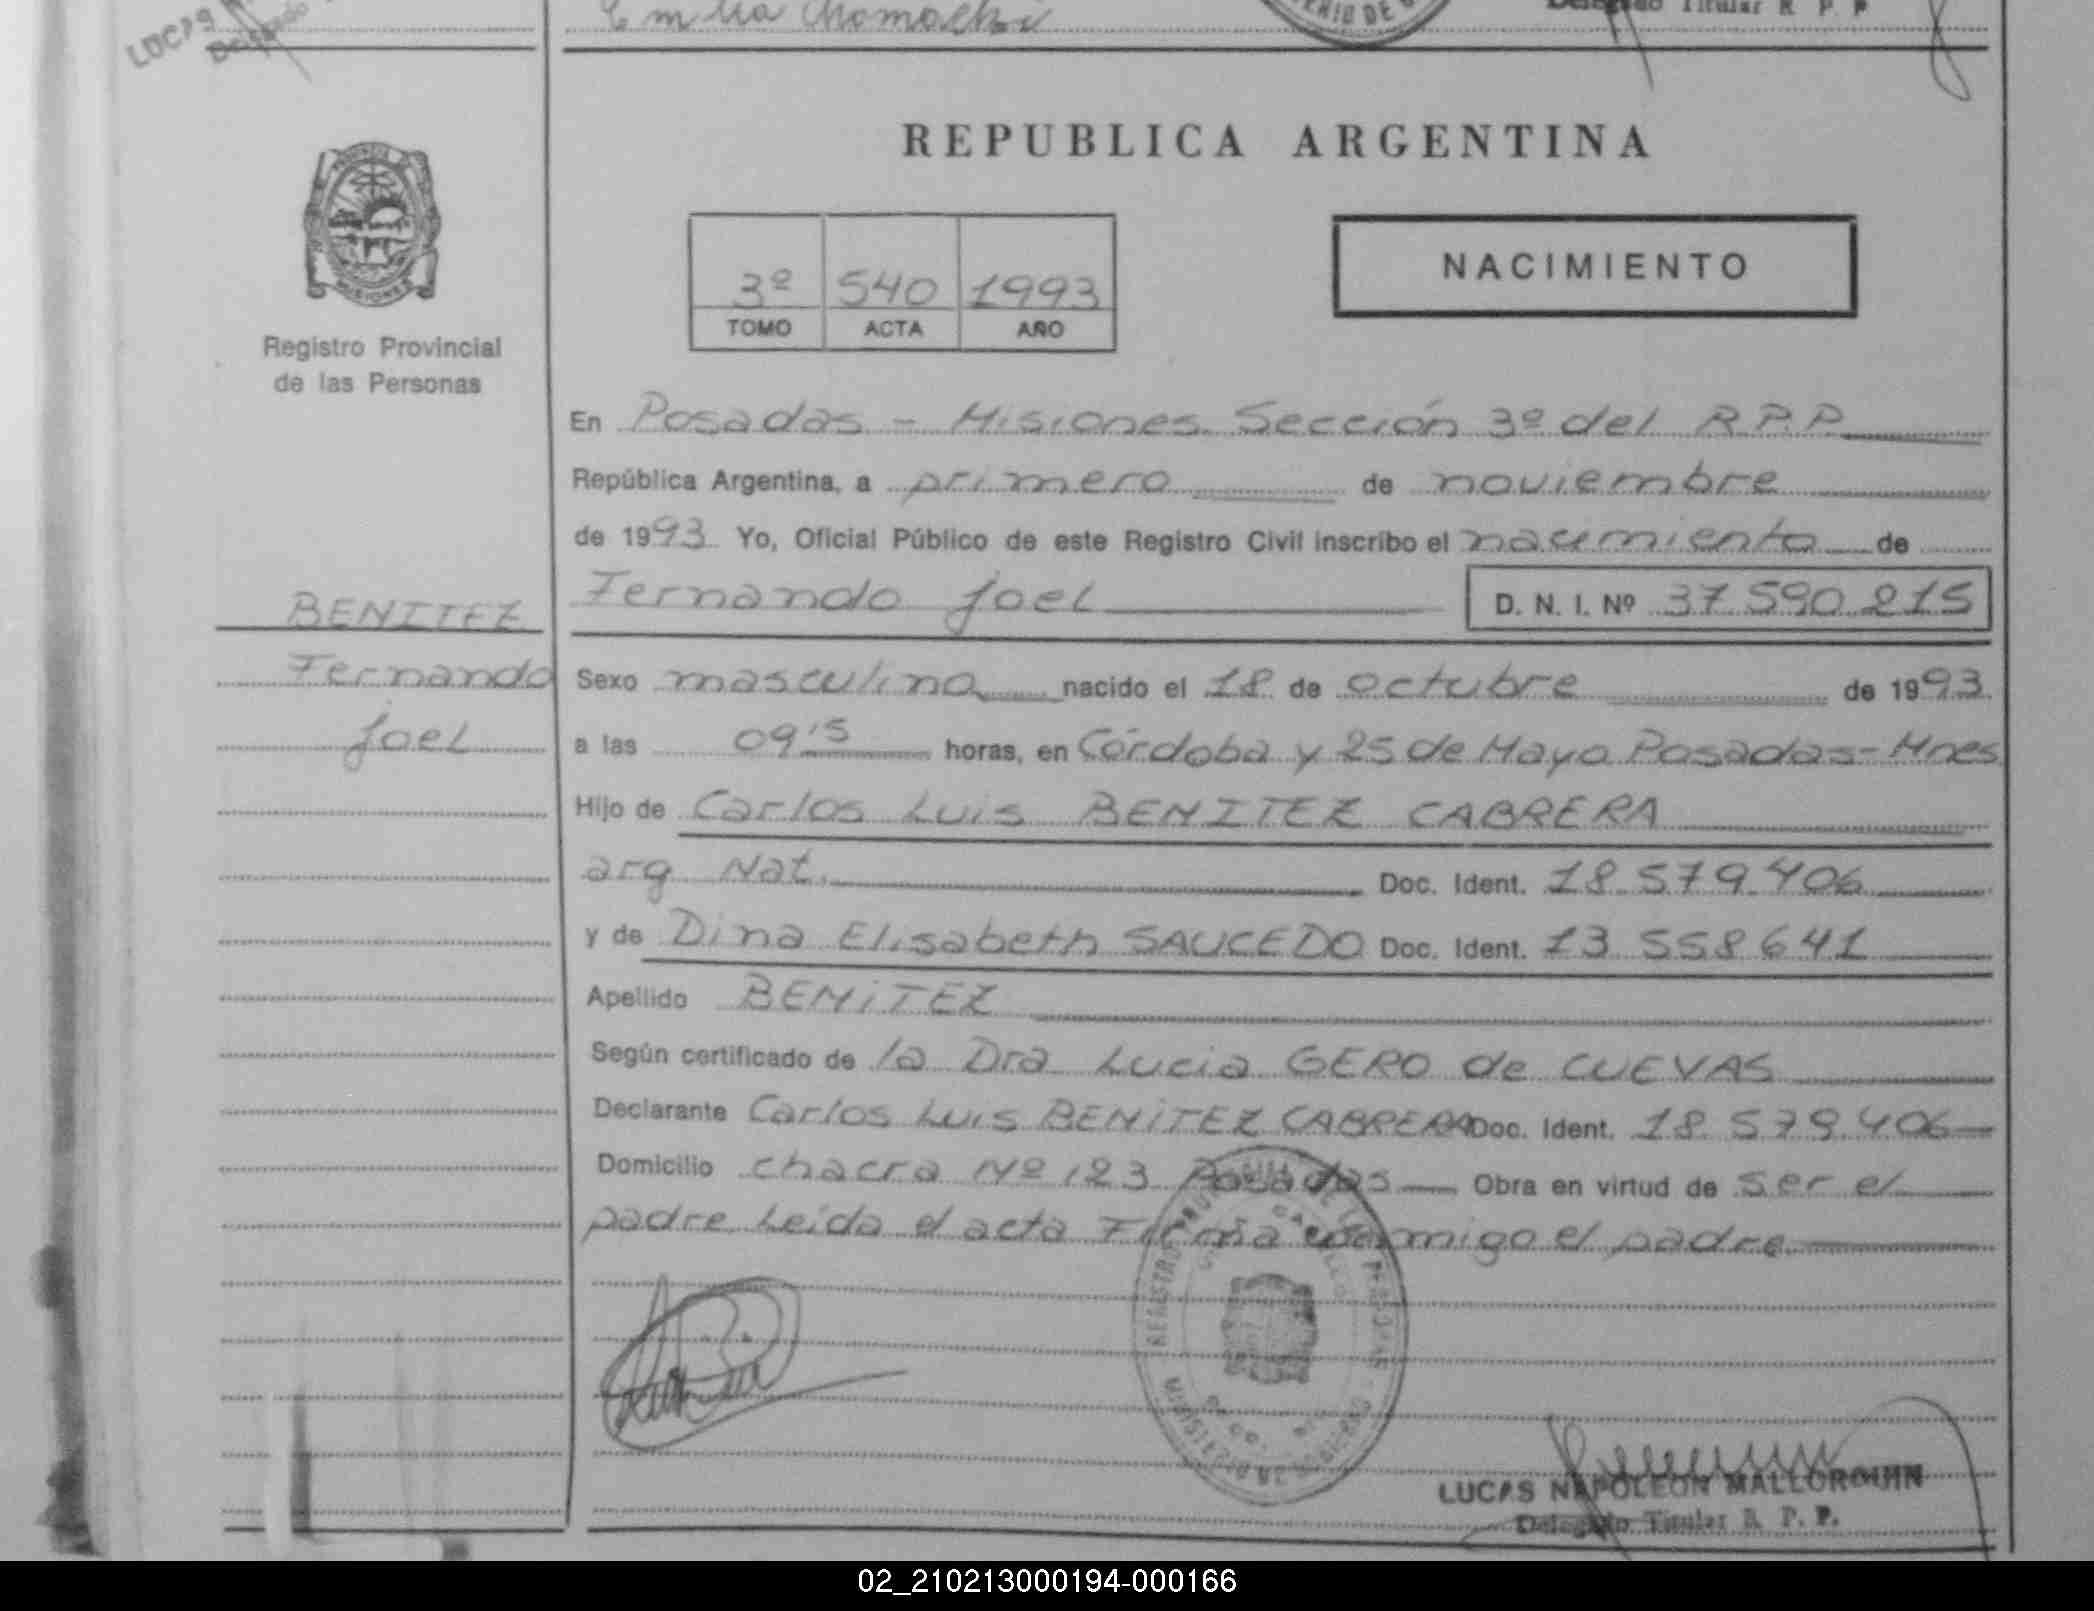 Emilia
Delegado Titular R. P. P.
REPUBLICA ARGENTINA
3º 540 1993
TOMO ACTA AÑO
NACIMIENTO
MISIONES
Registro Provincial
de las Personas
En Posadas - Misiones Sección 3º del R.P.P.
República Argentina, a primero de noviembre
de 1993 Yo, Oficial Público de este Registro Civil inscribo el nacimiento de
Fernando Joel D. N. I. Nº 37 590 215
BENITEZ
Fernando
Joel
Sexo masculino nacido el 18 de octubre de 1993
a las 09'5 horas, en Córdoba y 25 de Mayo Posadas - Mnes
Hijo de Carlos Luis BENITEZ CABRERA
arg Nat. Doc. Ident. 18.579.406
y de Dina Elisabeth SAUCEDO Doc. Ident. 13 558 641
Apellido BENITEZ
Según certificado de la Dra Lucia GERO de CUEVAS
Declarante Carlos Luis BENITEZ CABRERA Doc. Ident. 18.579.406
Domicilio chacra Nº 123 Posadas Obra en virtud de ser el
padre Leida el acta Firma conmigo el padre
LUCAS NAPOLEON MALLORQUIN
Delegado Titular R. P. P.
02_210213000194-000166